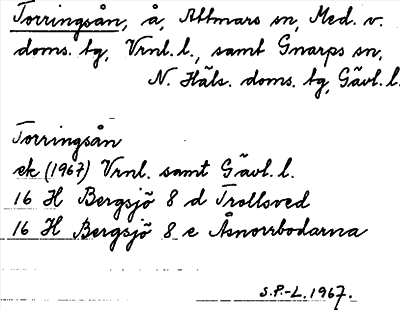 Torringsån, å, Attmars sn, Med. v.
doms. tg, Vrnl. l., samt Gnarps sn,
N. Häls. doms. tg, Gävl. l.
Torringsån
ek (1967) Vrnl. samt Gävl. l.
16 H Bergsjö 8 d Trollsved
16 H Bergsjö 8 e Åsnorrbodarna
S.P.-L. 1967.